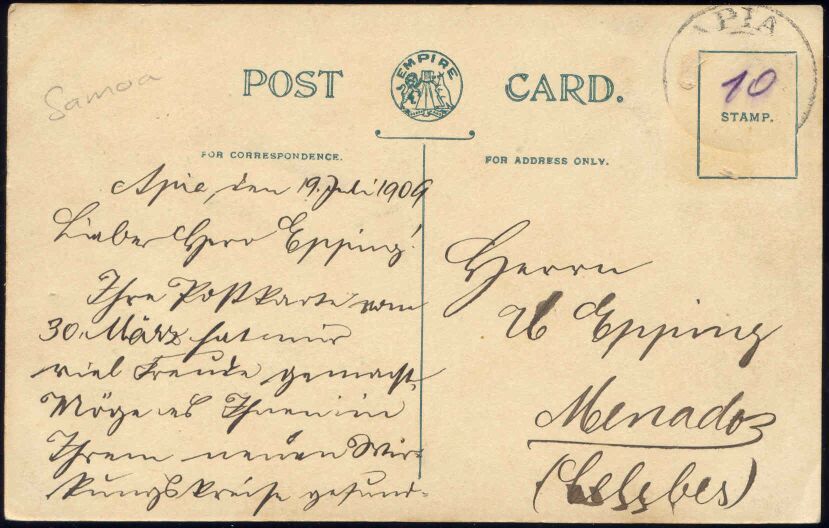 Samoa
POST CARD.
EMPIRE
APIA
10
STAMP.
FOR CORRESPONDENCE.
FOR ADDRESS ONLY.
Apia, den 19. Juli 1909
Lieber Herr Epping!
Ihre Postkarte vom
30. März hat mir
viel Freude gemacht,
Möge es Ihnen in
Ihrem neuen Wir-
kungskreise gesund-
Herrn
Epping
Menado
(Celebes)